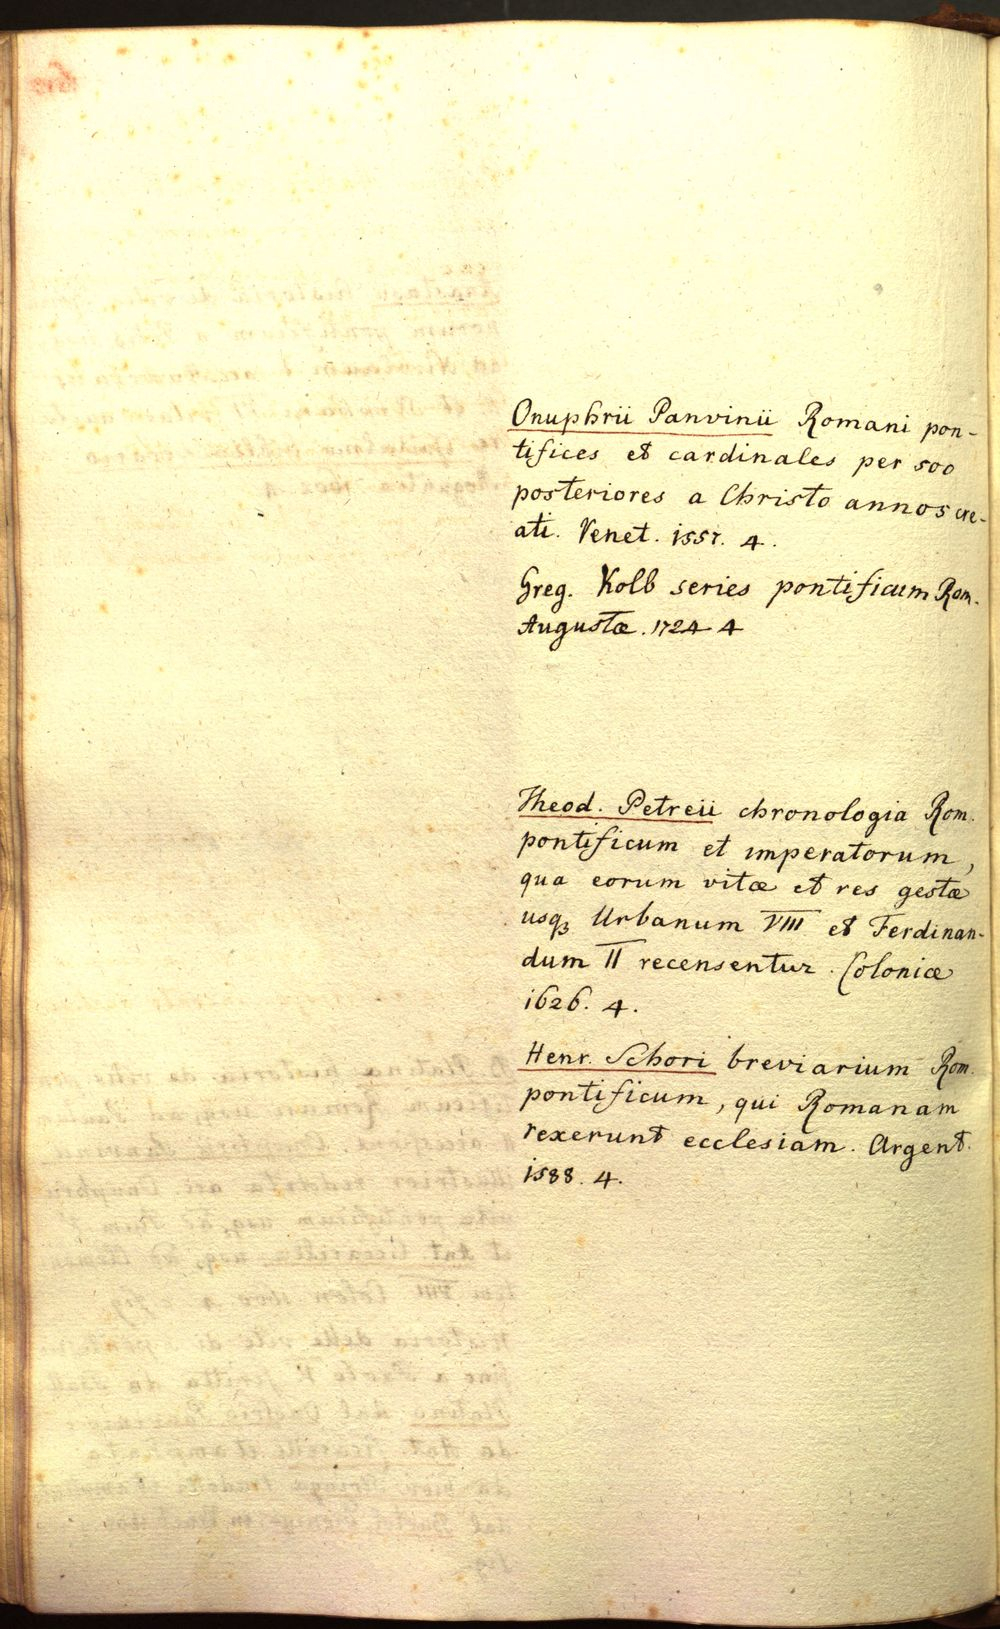 Onuphrii Panvinii Romani pon-
tifices et cardinales per 500
posteriores a Christo annos cre-
ati. Venet. 1557. 4.
Greg. Kolb series pontificum Rom.
Augustæ. 1724 4
Theod. Petreii chronologia Rom.
pontificum et imperatorum,
qua eorum vitæ et res gestæ
usq3 Urbanum VIII et Ferdinan-
dum II recensentur. Coloniæ
1626. 4.
Henr. Schori breviarium Rom.
pontificum, qui Romanam
rexerunt ecclesiam. Argent.
1588. 4.